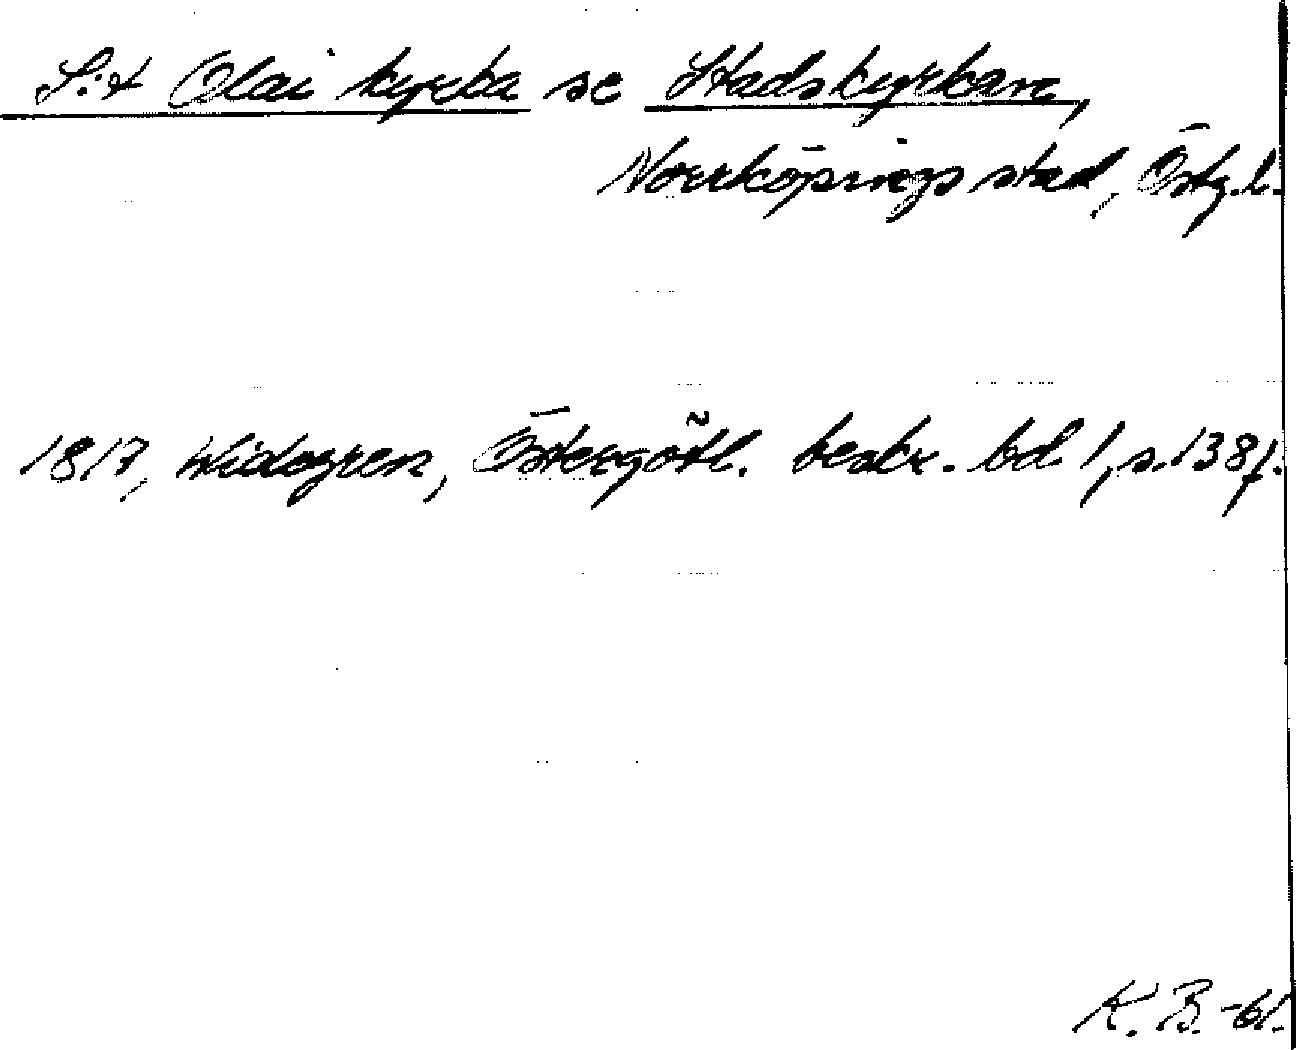 S:t Olai kyrka se Stadskyrkan,
Norrköpings stad, Östg.l.
1817, Widegren, Östergötl. beskr. bd 1, s. 138f.
K. B. -61.